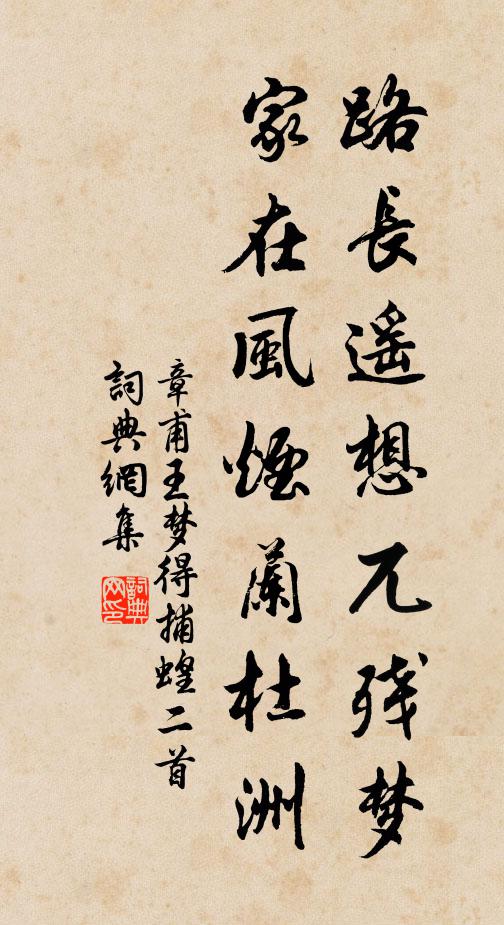 路長遥想兀残梦
家在風煙蘭杜洲
章甫王梦得捕蝗二首
詞典網集
詞典網印